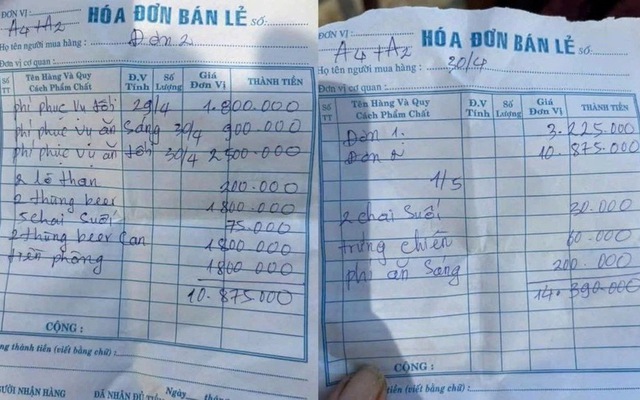 ĐƠN VỊ:
HÓA ĐƠN BÁN LẺ SỐ:
A4+A2
Họ tên người mua hàng: Đơn 2
Đơn vị cơ quan:
SỐ TT Tên Hàng Và Quy Cách Phẩm Chất Đ.V Tính Số Lượng Giá Đơn Vị THÀNH TIỀN
phí phục vụ tối 29/4 1.800.000
phí phục vụ ăn sáng 30/4 900.000
phí phục vụ ăn tối 30/4 2500.000
2 lò than 200.000
2 thùng beer 1800.000
5 chai suối 75.000
2 thùng beer can 1800 000
tiền phòng 1800 000
10.875.000
CỘNG :
thành tiền (viết bằng chữ):
NGƯỜI NHẬN HÀNG
ĐÃ NHẬN ĐỦ
Ngày
ĐƠN VỊ:
HÓA ĐƠN BÁN LẺ SỐ:
A4+A2
Họ tên người mua hàng: 30/4
Đơn vị cơ quan:
SỐ TT Tên Hàng Và Quy Cách Phẩm Chất Đ.V Tính Số Lượng Giá Đơn Vị THÀNH TIỀN
Đơn 1. 3.225.000
Đơn 2 10.875.000
1/5
2 chai suối 30.000
trứng chiên 60.000
phí ăn sáng 200.000
14.390.000
CỘNG :
Cộng thành tiền (viết bằng chữ):